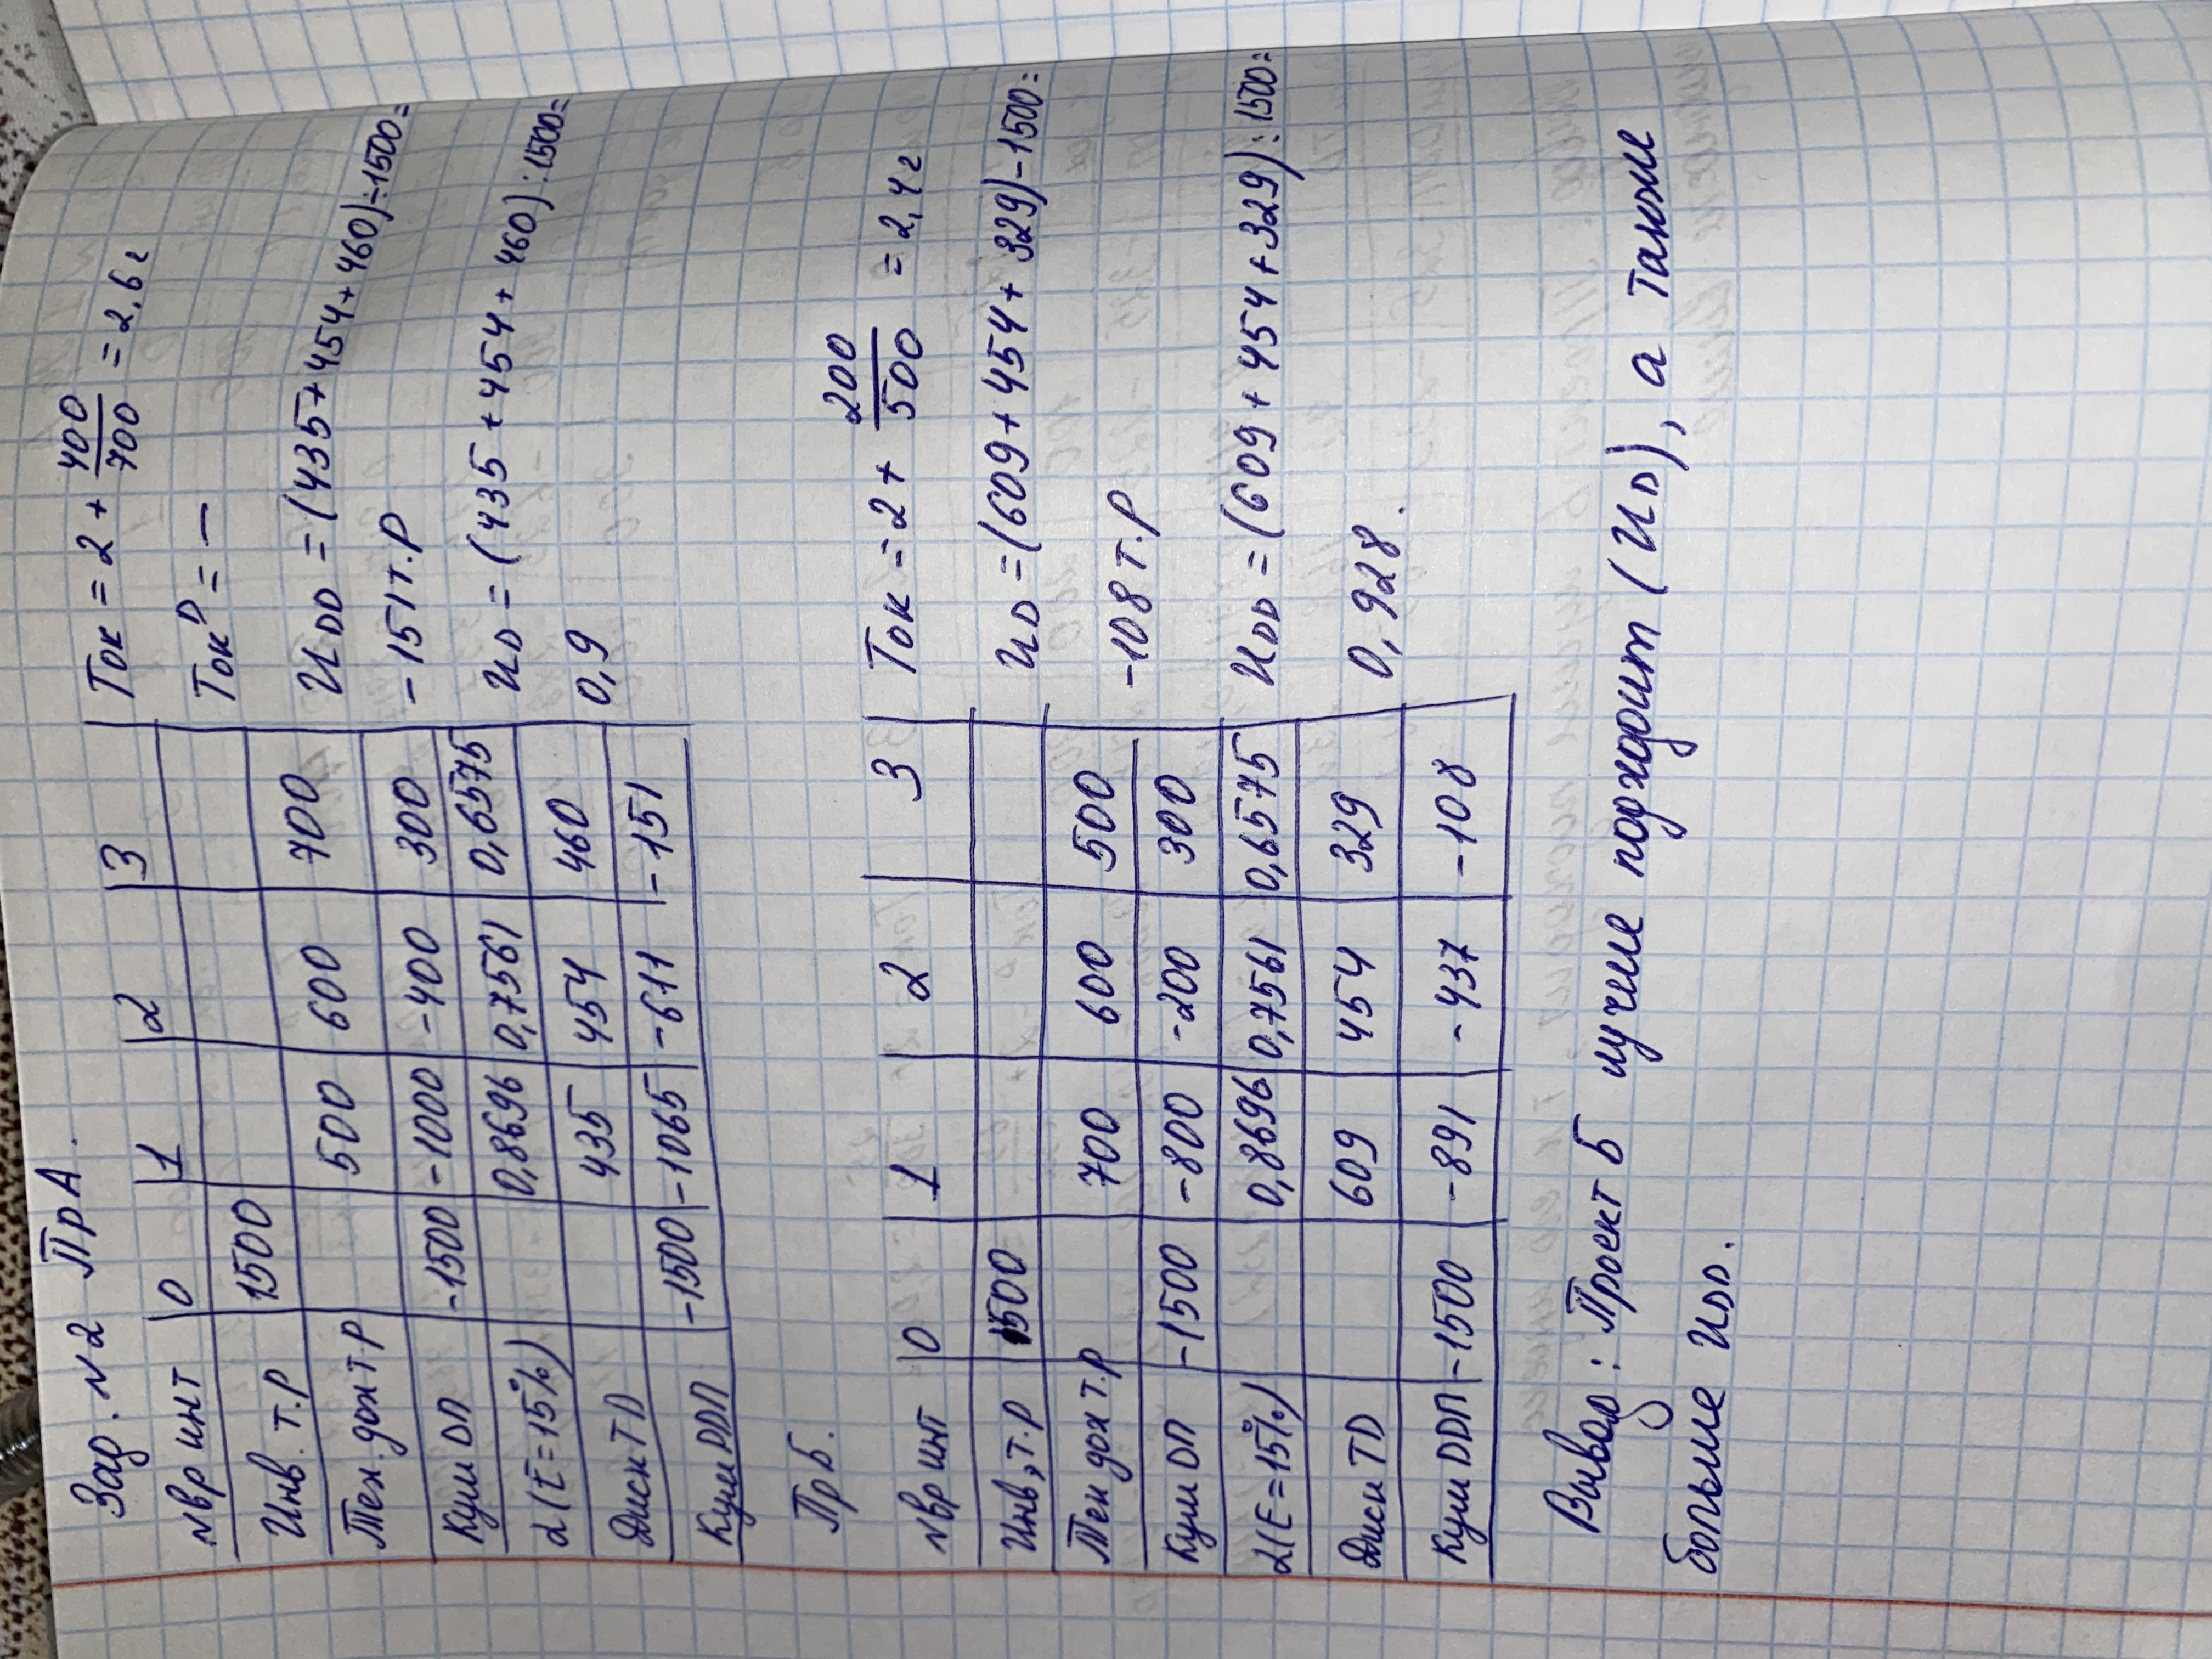 Зад. №2 Пр А.
№вр инт 0 1 2 3
Инв. т.р 1500
Тек. дох т.р 500 600 700
Кум ДП -1500 -1000 -400 300
α (E=15%) 0,8696 0,7561 0,6575
Диск ТД 435 454 460
Кум ДДП -1500 -1065 -611 -151
Ток = 2 + 400/700 = 2.6 г
Ток^D = —
ИDD = (435+454+460)÷1500=
-151 т.р
ИD = (435+454+460):1500=
0,9
Пр Б.
№вр инт 0 1 2 3
Инв, т.р 1500
Тек дох т.р 700 600 500
Кум ДП -1500 -800 -200 300
α (E=15%) 0,8696 0,7561 0,6575
Диск ТД 609 454 329
Кум ДДП -1500 -891 -437 -108
Ток = 2 + 200/500 = 2,4 г
ИD = (609+454+329)-1500=
-108 т.р
ИDD = (609+454+329):1500=
0,928.
Вывод: Проект Б лучше подходит (ИD), а также
больше ИDD.